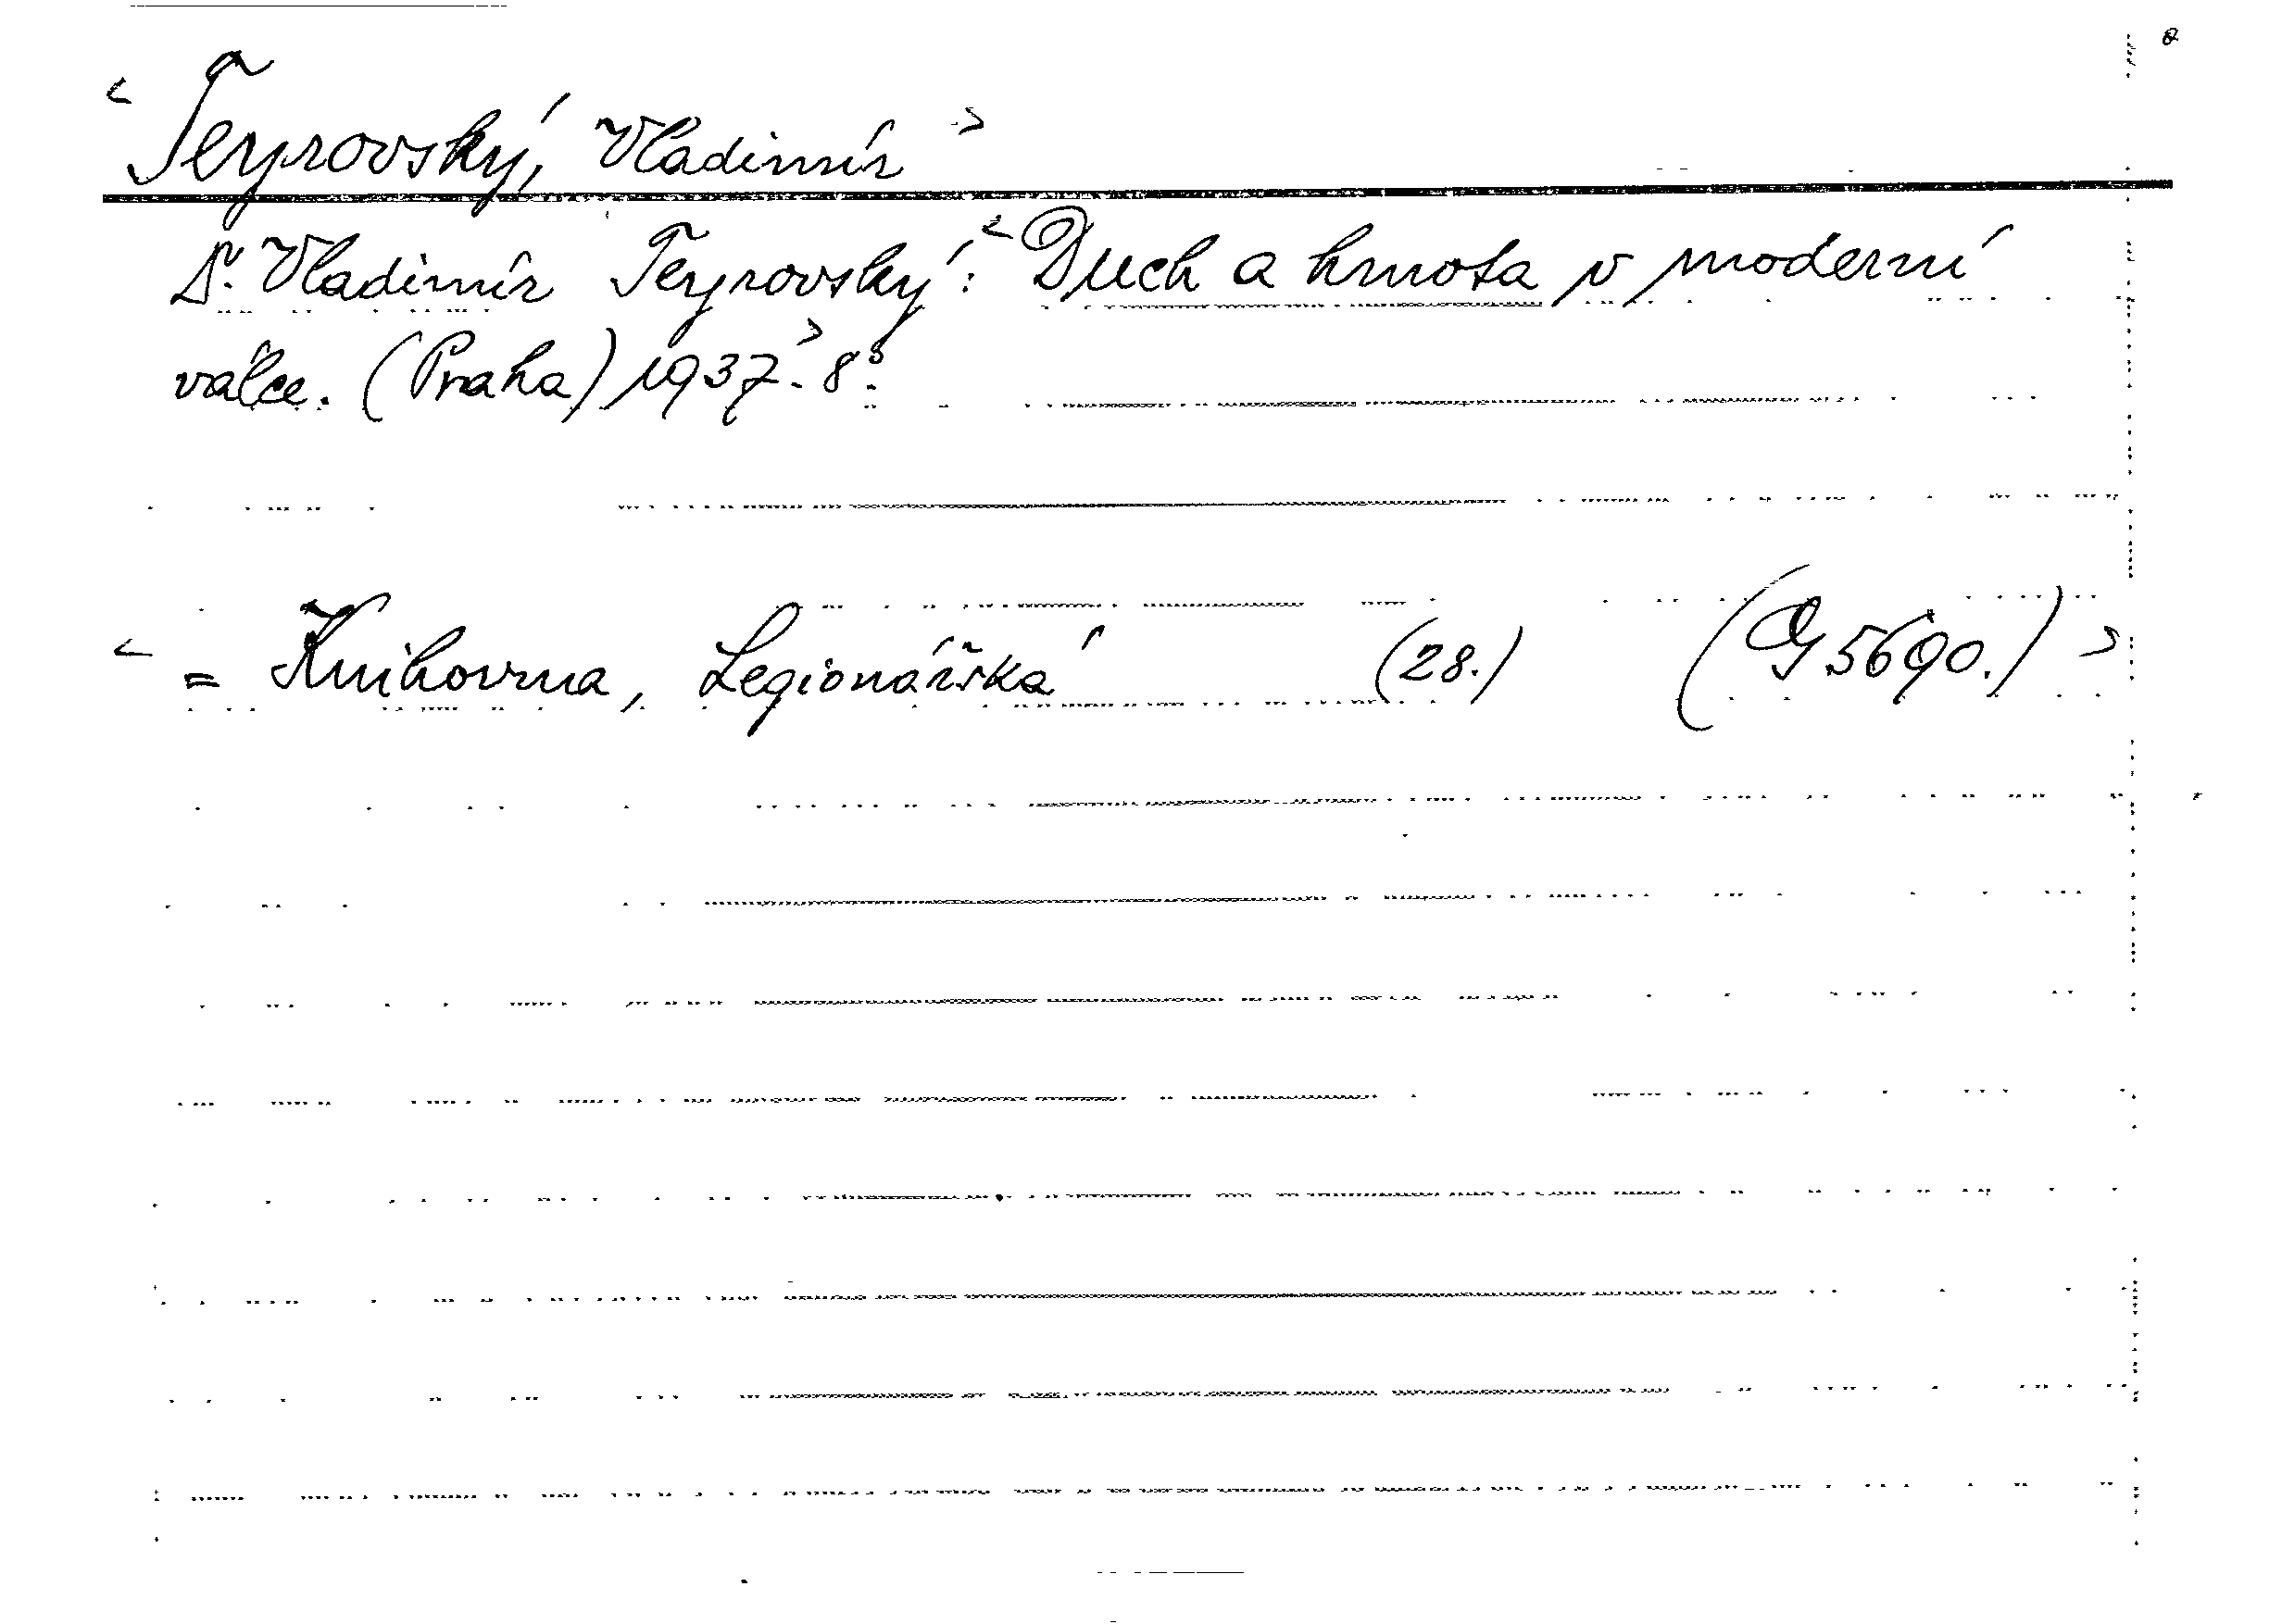 < Teyrovský, Vladimír >
Dr. Vladimír Teyrovský: < Duch a hmota v moderní
válce. (Praha) 1937. > 8°.
< = Knihovna, Legionářská (28.) (G 5690.) >